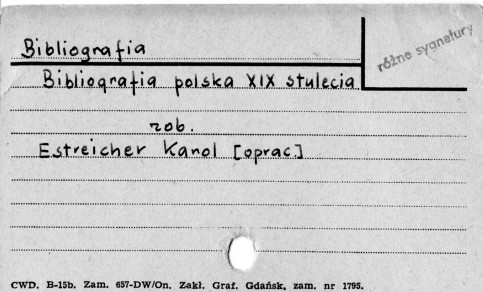 Bibliografia
różne sygnatury
Bibliografia polska XIX stulecia
zob.
Estreicher Karol [oprac.]
CWD. B-15b. Zam. 657-DW/On. Zakł. Graf. Gdańsk, zam. nr 1795.